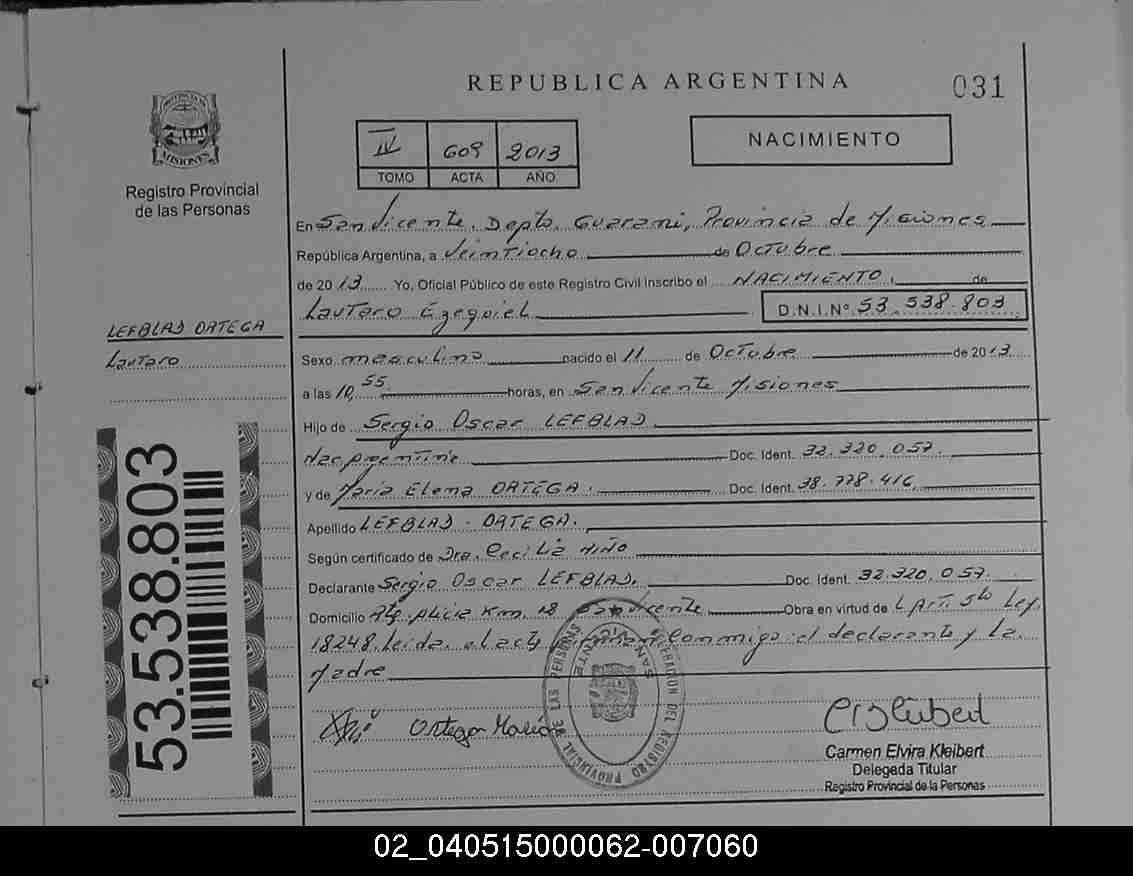 REPUBLICA ARGENTINA
031
PROVINCIA DE MISIONES
Registro Provincial
de las Personas
IV 609 2013
TOMO ACTA AÑO
NACIMIENTO
En San Vicente, Depto. Guarani, Provincia de Misiones
República Argentina, a Veintiocho de Octubre
de 2013 Yo, Oficial Público de este Registro Civil inscribo el NACIMIENTO, de
Lautaro Ezequiel D.N.I.Nº 53.538.803
LEFBLAD ORTEGA
Lautaro
Sexo masculino nacido el 11 de Octubre de 2013
a las 10,55 horas, en San Vicente Misiones
Hijo de Sergio Oscar LEFBLAD
Nac. Argentina Doc. Ident. 32.320.057.
y de Maria Elena ORTEGA. Doc. Ident. 38.778.416
Apellido LEFBLAD - ORTEGA.
Según certificado de Dra. Cecilia NIÑO
Declarante Sergio Oscar LEFBLAD. Doc. Ident. 32.320.057.
Domicilio Alicia Km. 18 San Vicente Obra en virtud de L Art. 5to Ley.
18248. Leida el acta, firman conmigo el declarante y la
Madre
53.538.803
Ortega Maria
SAN VICENTE
DEL REGISTRO PROVINCIAL DE LAS PERSONAS
Carmen Elvira Kleibert
Delegada Titular
Registro Provincial de la Personas
02_040515000062-007060